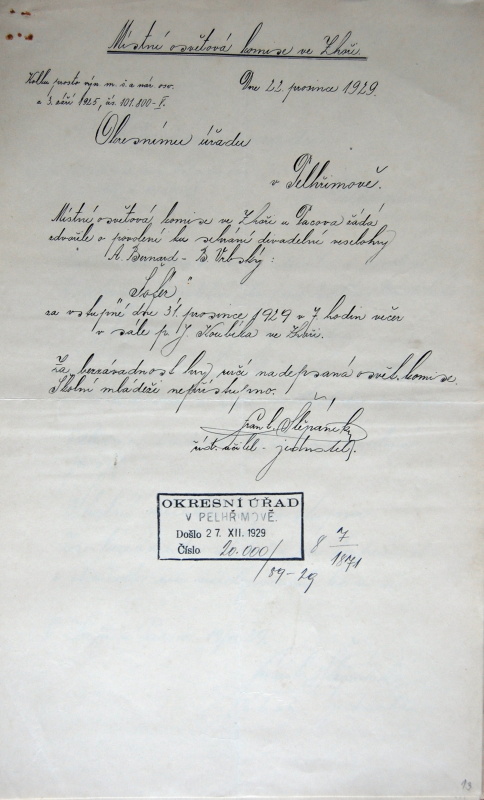 Místní osvětová komise ve Zhoři.
Kolku prosto výn. m. š. a nár. osv.
z 3. září 1925, čís. 101.800-V.
Dne 22. prosince 1929.
Okresnímu úřadu
v Pelhřimově.
Místní osvětová komise ve Zhoři u Pacova žádá
zdvořile o povolení ku sehrání divadelní veselohry
A. Bernard - B. Vrbský:
"Šofér"
za vstupné dne 31. prosince 1929 v 7. hodin večer
v sále p. J. Koubka ve Zhoři.
Za bezzávadnost hry ručí nadepsaná osvět. komise.
Školní mládeži nepřístupno.
Frant. Štěpánek,
říd. učitel - jednatel.
OKRESNÍ ÚŘAD
V PELHŘIMOVĚ.
Došlo 27. XII. 1929
Číslo 20.000/
/89-29
8 7/1871
13